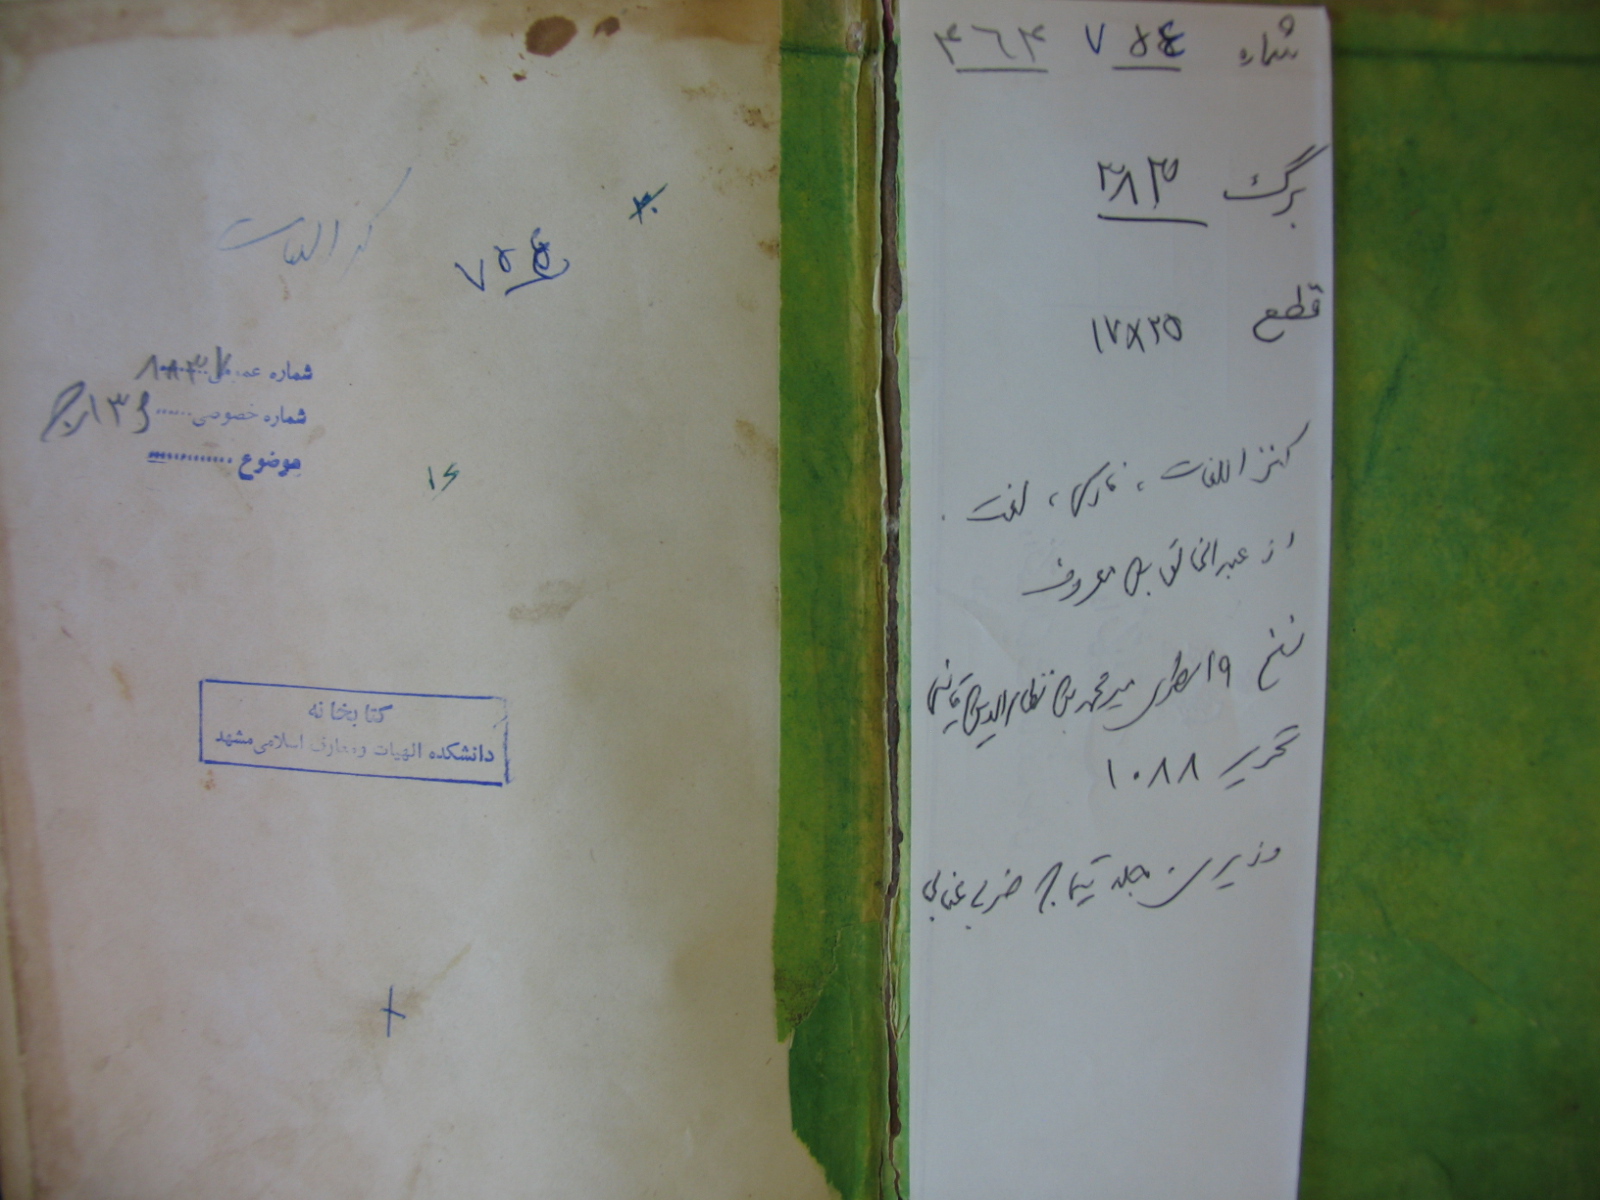 شماره ۷۵۴ ۴۶۴
برگ ۳۸۳
قطع ۱۷×۲۵
کنز اللغات، فارسی، لغت.
از عبدالخالق بن معروف
نسخ
میرمحمد بن نظام الدین
تحریر ۱۰۸۸
وزیری. جلد تیماج ضربی عنابی
کنز اللغات
شماره عمومی
شماره خصوصی
موضوع
۱۶
کتابخانه
دانشکده الهیات ومعارف اسلامی مشهد